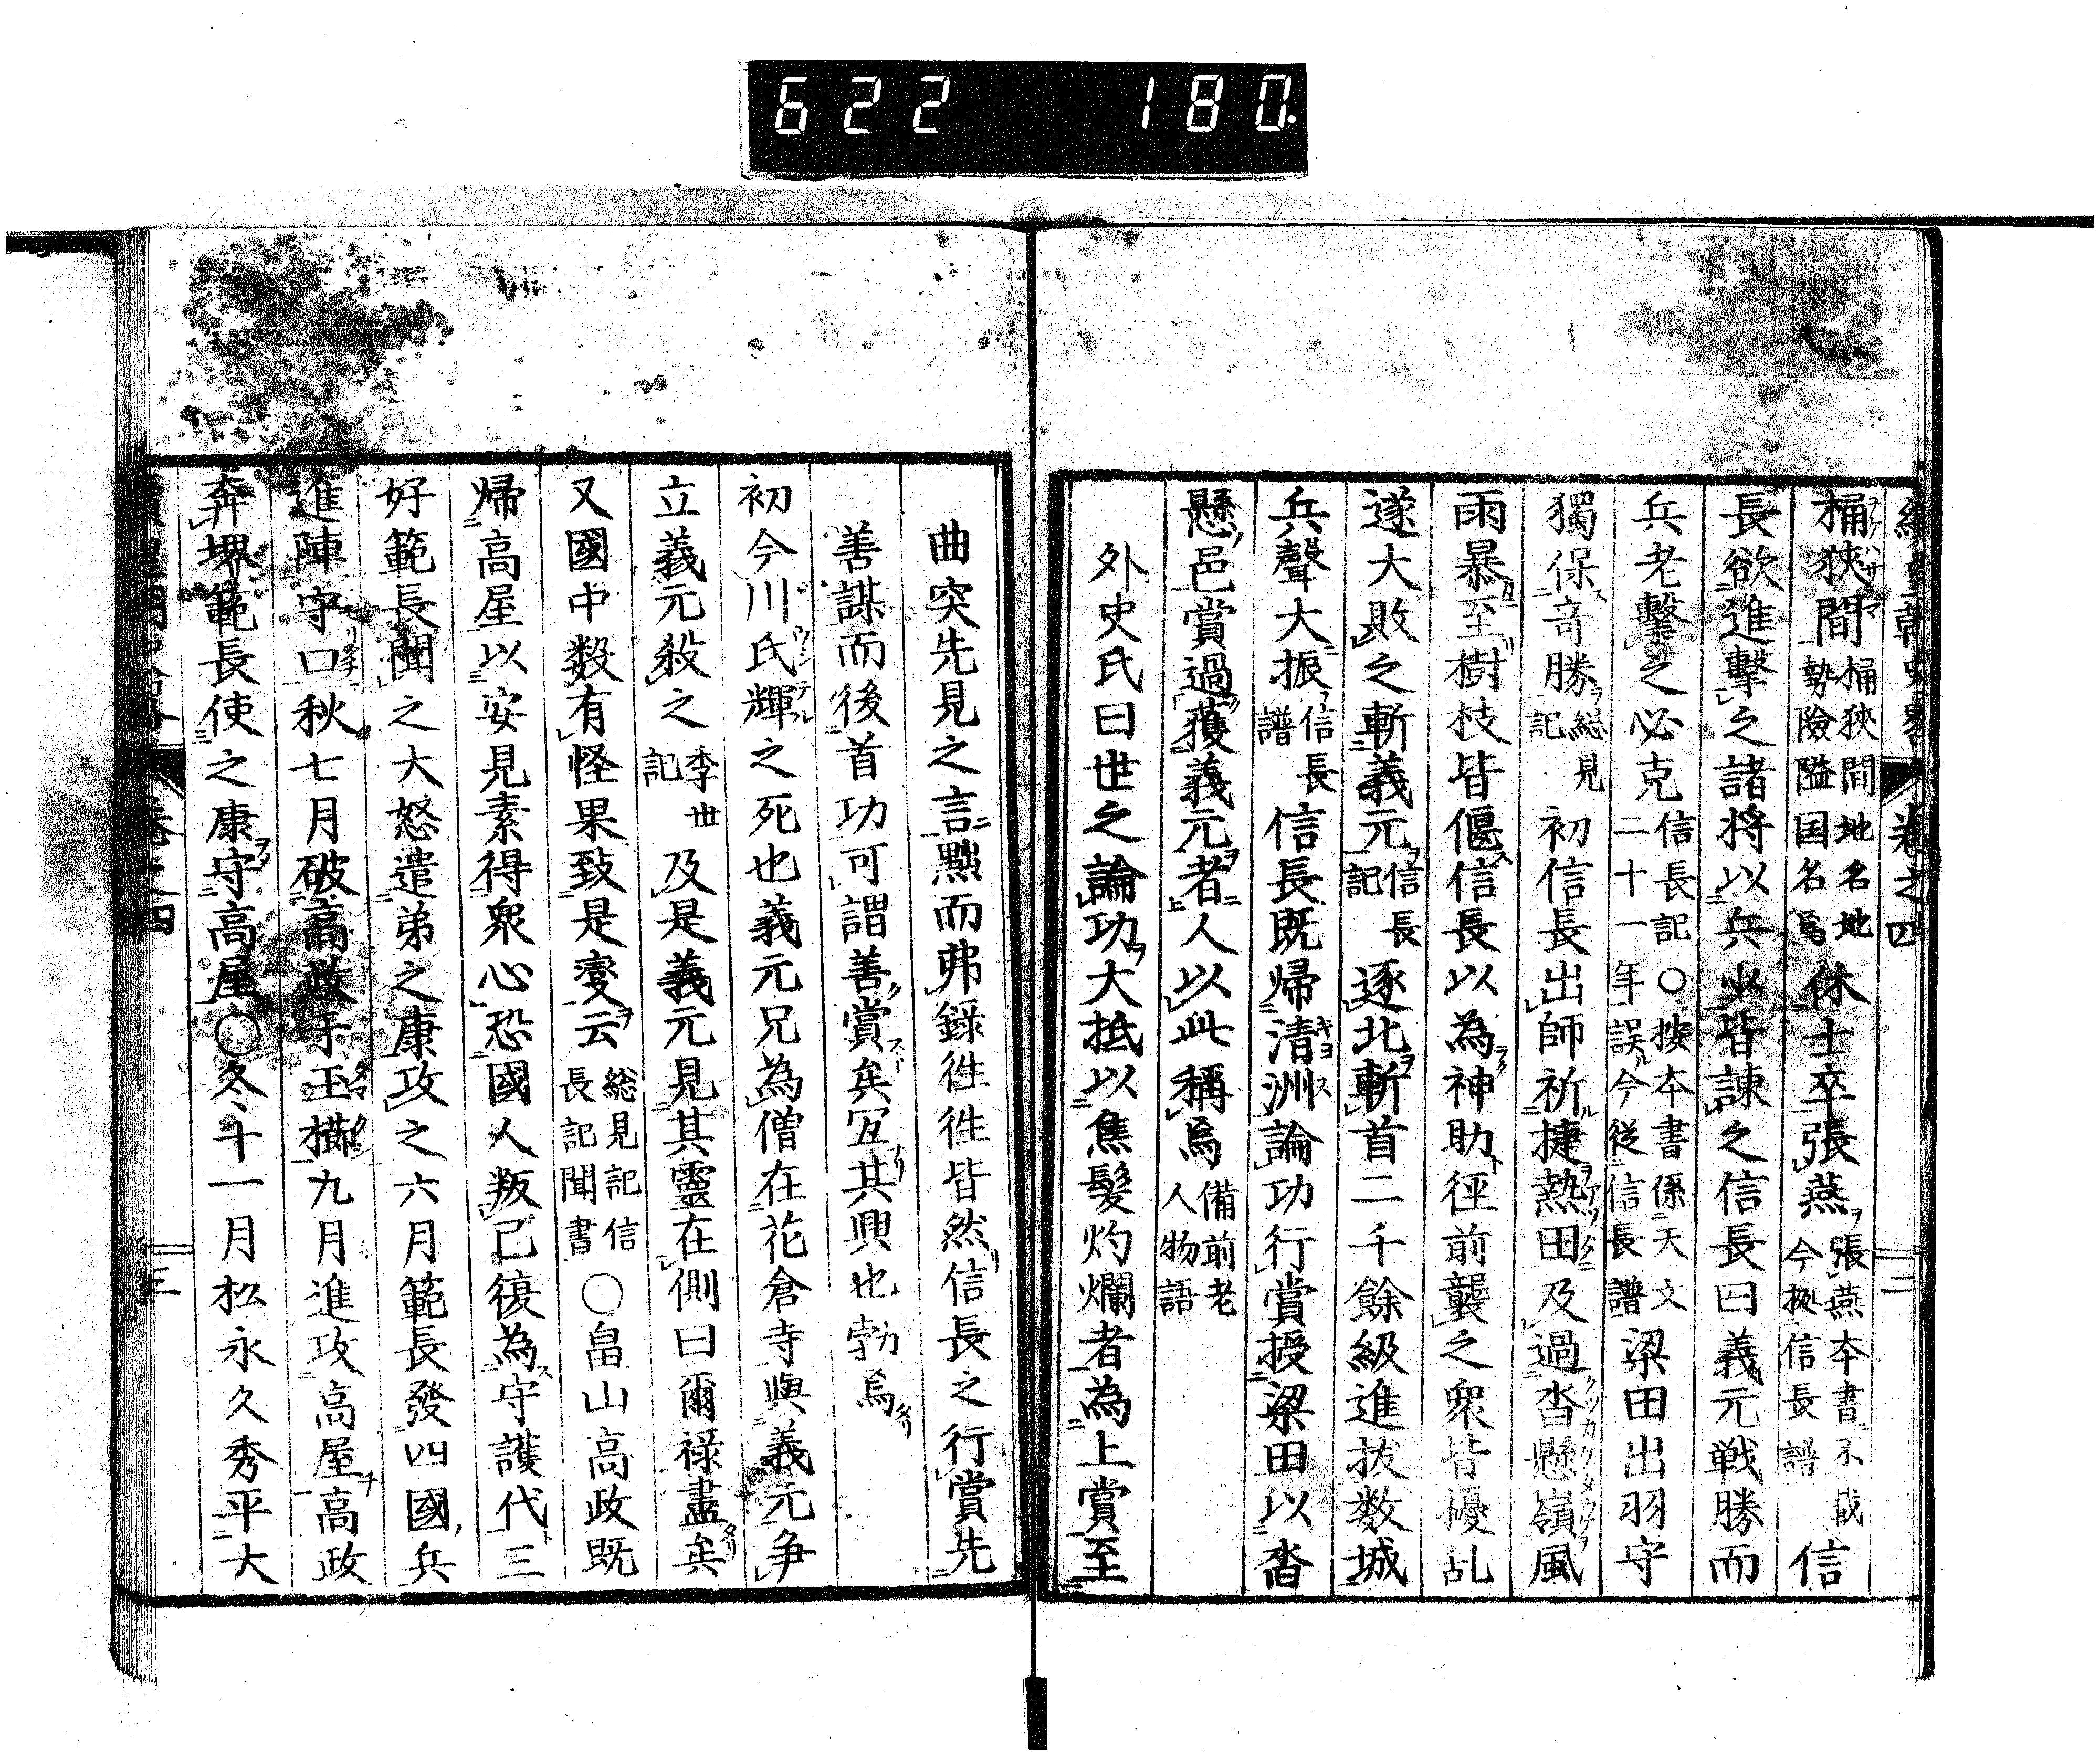 622 180.
卷之四 二
桶狹間桶狹間地名地勢險隘因名焉休士卒張燕張燕本書不載今拠信長譜信
長欲進擊之諸将以兵少皆諌之信長曰義元戦勝而
兵老擊之必克信長記○按本書係天文二十一年誤今從信長譜梁田出羽守
獨保竒勝総見記初信長出師祈捷熱田及過沓懸嶺風
雨暴至樹枝皆偃信長以為神助徑前襲之衆皆擾乱
遂大敗之斬義元信長記逐北斬首二千餘級進抜数城
兵聲大振信長譜信長既帰清洲論功行賞授梁田以沓
懸邑賞過獲義元者人以此稱焉備前老人物語
外史氏曰世之論功大抵以焦髪灼爛者為上賞至
曲突先見之言黙而弗録徃徃皆然信長之行賞先
善謀而後首功可謂善賞矣冝其興也勃焉
初今川氏輝之死也義元兄為僧在花倉寺與義元争
立義元殺之季世記及是義元見其靈在側曰爾禄盡矣
又國中数有怪果致是変云総見記信長記聞書○畠山高政既
帰高屋以安見素得衆心恐國人叛已復為守護代三
好範長聞之大怒遣弟之康攻之六月範長發四國兵
進陣守口秋七月破高政于玉櫛九月進攻高屋高政
奔堺範長使之康守高屋○冬十一月松永久秀平大
三